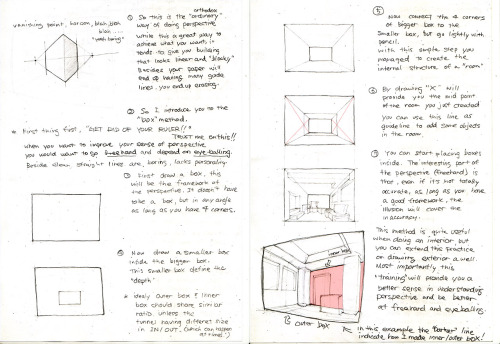 vanishing point, horison, blah blah
blah....
"yeah bring"
orthodox
① So this is the "ordinary"
way of doing perspective
while this a great way to
achieve what you want, it
tends to give you building
that looks linear and "blocky"
Besides your paper will
end up having many guide
lines. you end up erasing.
② So I introduce you to the
"box" method.
* First thing first, "GET RID OF YOUR RULER!!"
TRUST me on this!!
when you want to improve your sense of perspective
you would want to go freehand and depend on eye-balling.
Beside clean straight lines are, boring, lacks personality
③ First draw a box, this
will be the framework of
the perspective. It doesn't have
to be a box, but in any angle
as long as you have 4 corners.
④ Now draw a smaller box
inside the bigger box.
This smaller box define the
"depth"
* idealy outer box & inner
box should share similar
ratio. unless the
tunnel having different size
in IN/OUT. (which can happen
at times!)
⑤ Now connect the 4 corners
of bigger box to the
smaller box, but go lightly with
pencil.
with this simple step you
managed to create the
internal structure of a "room"
⑥ By drawing "X" will
provide you the mid point
of the room you just created
You can use this line as
guideline to add some objects
in the room.
⑦ You can start placing boxes
inside. The interesting part of
the perspective (freehand) is
that, even if it's not totally
accurate, as long as you have
a good framework, the
illusion will cover the
inaccuracy.
This method is quite useful
when doing an interior but
you can extend the practice
on drawing exterior a well.
Most importantly this
"training" will provide you a
better sense in understanding
perspective and be better
at freehand and eyeballing.
inner box
outer box
in this example the "darker" line
indicate how I made inner/outer box!